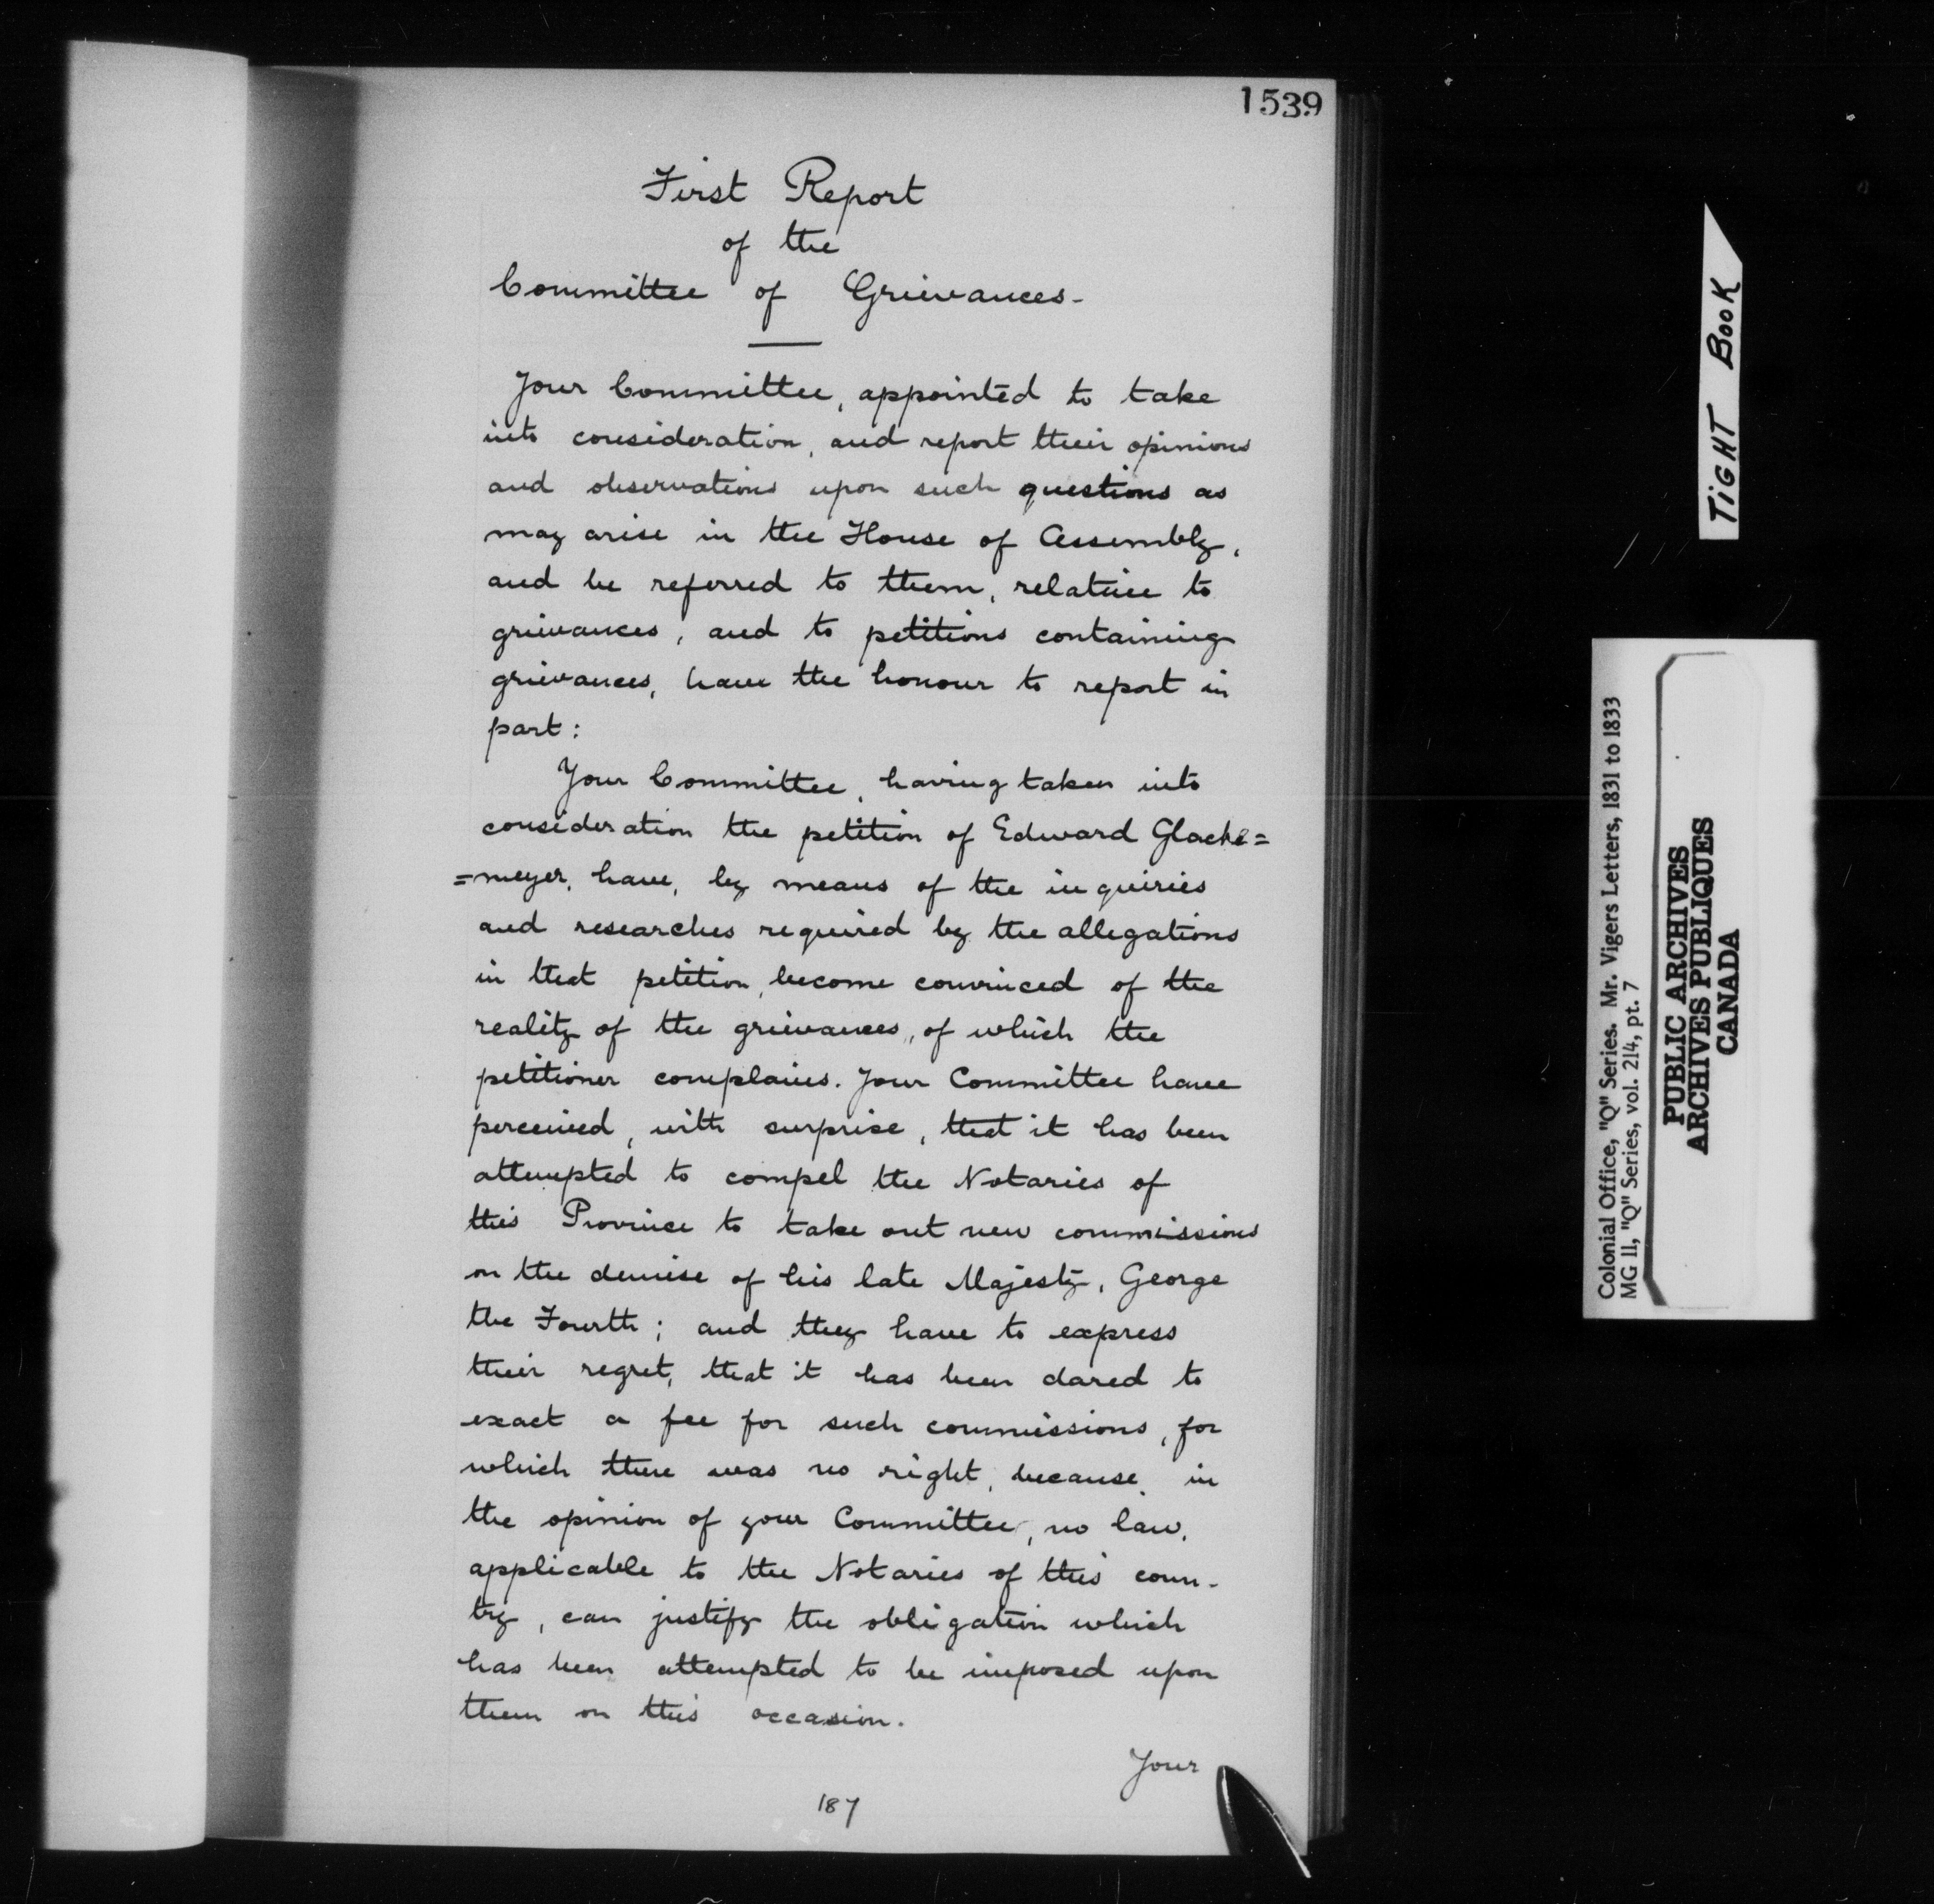 1539
First Report
of the
Committee of Grievances-
Your Committee, appointed to take
into consideration, and report their opinions
and observations upon such questions as
may arise in the House of Assembly,
and be referred to them, relative to
grievances, and to petitions containing
grievances, have the honour to report in
part:
Your Committee, having taken into
consideration the petition of Edward Glacke=
=meyer, have, by means of the inquiries
and researches required by the allegations
in that petition, become convinced of the
reality of the grievances, of which the
petitioner complains. Your Committee have
perceived, with surprise, that it has been
attempted to compel the Notaries of
this Province to take out new commissions
on the demise of his late Majesty, George
the Fourth; and they have to express
their regret, that it has been dared to
exact a fee for such commissions, for
which there was no right, because, in
the opinion of your Committee, no law,
applicable to the Notaries of this coun-
try, can justify the obligation which
has been attempted to be imposed upon
them on this occasion.
Your
187
TiGHT BOOK
Colonial Office, "Q" Series. Mr. Vigers Letters, 1831 to 1833
MG 11, "Q" Series, vol. 214, pt. 7
PUBLIC ARCHIVES
ARCHIVES PUBLIQUES
CANADA